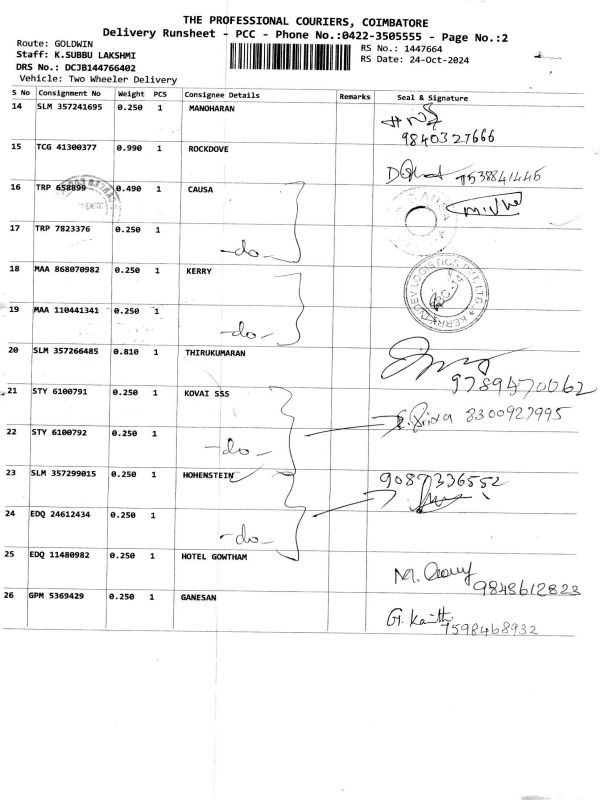 THE PROFESSIONAL COURIERS, COIMBATORE
Delivery Runsheet - PCC - Phone No.:0422-3505555 - Page No.:2
Route: GOLDWIN
RS No.: 1447664
Staff: K.SUBBU LAKSHMI
RS Date: 24-Oct-2024
DRS No.: DCJB144766402
Vehicle: Two Wheeler Delivery
S No Consignment No Weight PCS Consignee Details Remarks Seal & Signature
14 SLM 357241695 0.250 1 MANOHARAN
9840327666
15 TCG 41300377 0.990 1 ROCKDOVE
7538841446
16 TRP 658899 0.490 1 CAUSA
17 TRP 7823376 0.250 1 -do-
18 MAA 868070982 0.250 1 KERRY
KERRY INDEV LOGISTICS PVT. LTD.
19 MAA 110441341 0.250 1 -do-
20 SLM 357266485 0.810 1 THIRUKUMARAN
9789470062
21 STY 6100791 0.250 1 KOVAI SSS
8300927995
22 STY 6100792 0.250 1 -do-
23 SLM 357299015 0.250 1 HOHENSTEIN
9087336552
24 EDQ 24612434 0.250 1 -do-
25 EDQ 11480982 0.250 1 HOTEL GOWTHAM
9843612823
26 GPM 5369429 0.250 1 GANESAN
7598468932